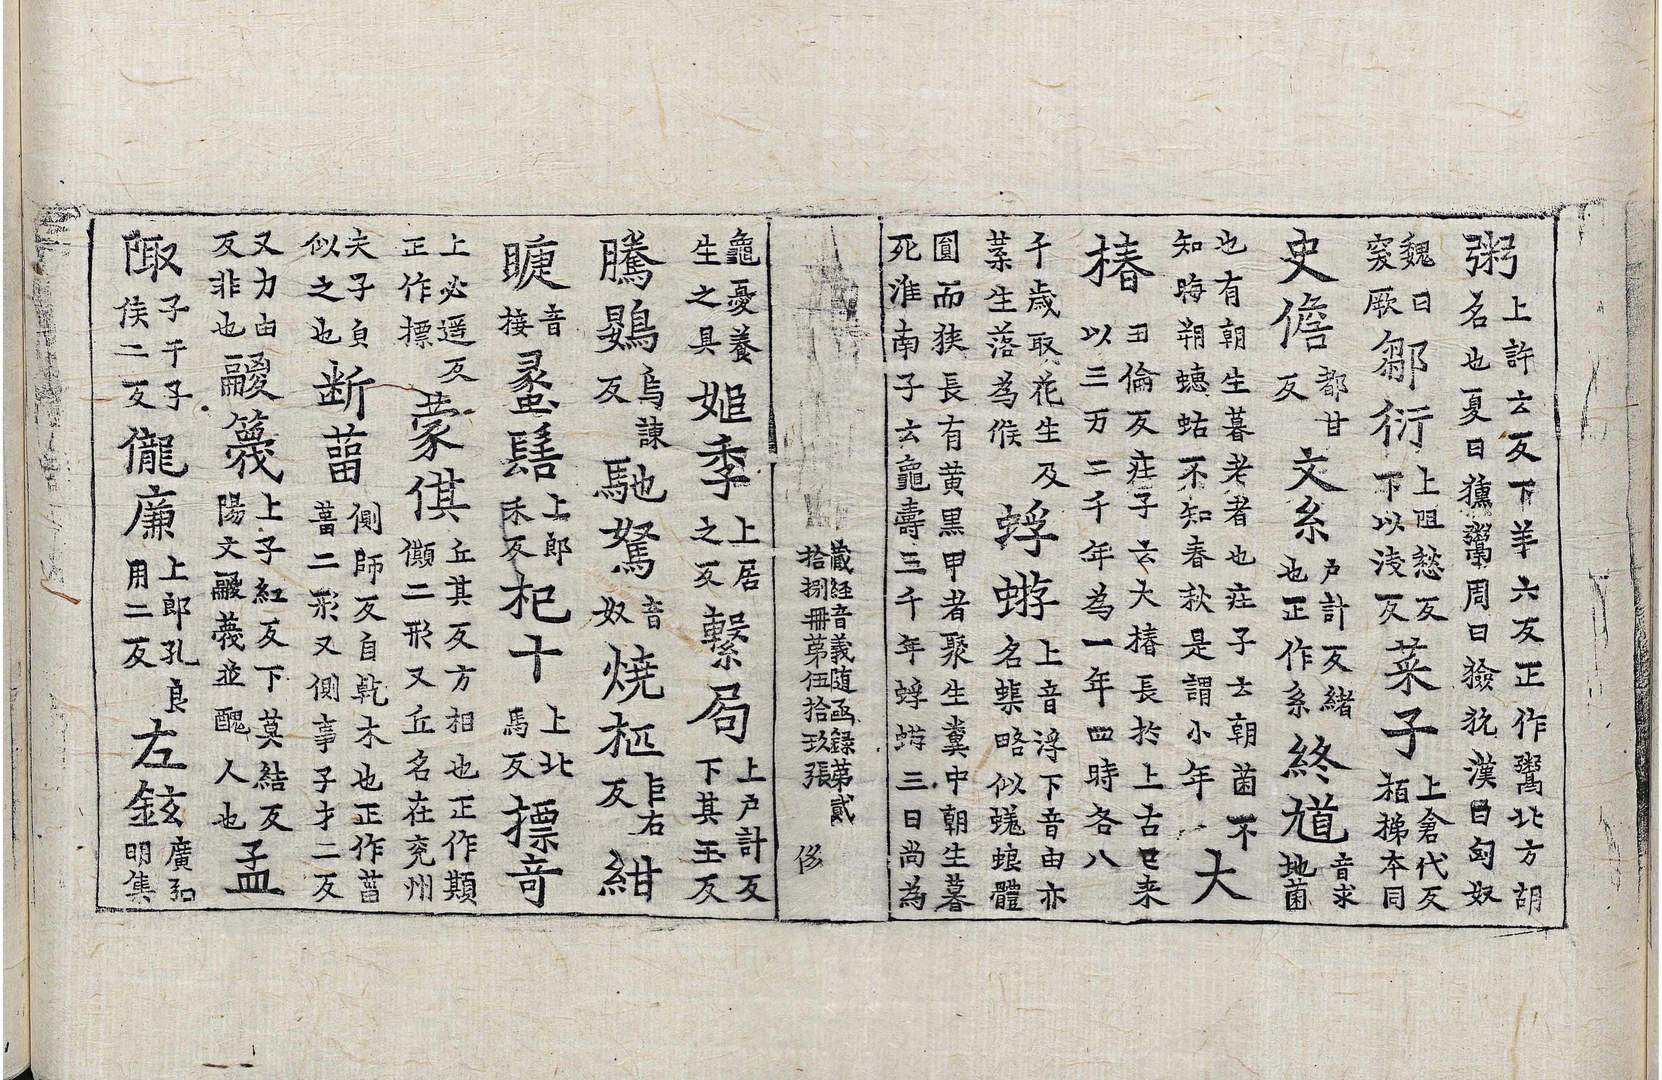 粥上許云反下羊六反正作鬻北方胡名也夏曰獯鬻周曰獫狁漢曰匈奴
魏曰突厥鄒衍上阻愁反下以淺反菜子上倉代反栢梯本同
史儋都甘反文系戶計反緒也正作系終馗音求地菌
也有朝生暮老者也庄子云朝菌不知晦朔蟪蛄不知春秋是謂小年大
椿丑倫反庄子云大椿長於上古已来以三万二千年為一年四時各八
千歳取花生及葉生落為候蜉蝣上音浮下音由亦名蟝略似蜣蜋體
圓而狹長有黄黒甲者聚生糞中朝生暮死淮南子云龜壽三千年蜉蝣三日尚為
藏経音義随函録第貳拾捌冊第伍拾玖張 㑋
龜憂養生之具姬季上居之反繫局上戶計反下其玉反
騰鷃烏諫反馳駑音奴燒柩臣右反紺
睫音接蠡髻上郎禾反杷十上北馬反摽奇
上必遥反正作標蒙倛丘其反方相也正作䫏僛二形又丘名在兖州
夫子負似之也断菑側師反自乾木也正作菑葘二形又側事子才二反
又力由反非也鬷篾上子紅反下莫結反陽文鬷蔑並醜人也孟
陬子于子侯二反儱亷上郎孔良用二反左鉉廣弘明集